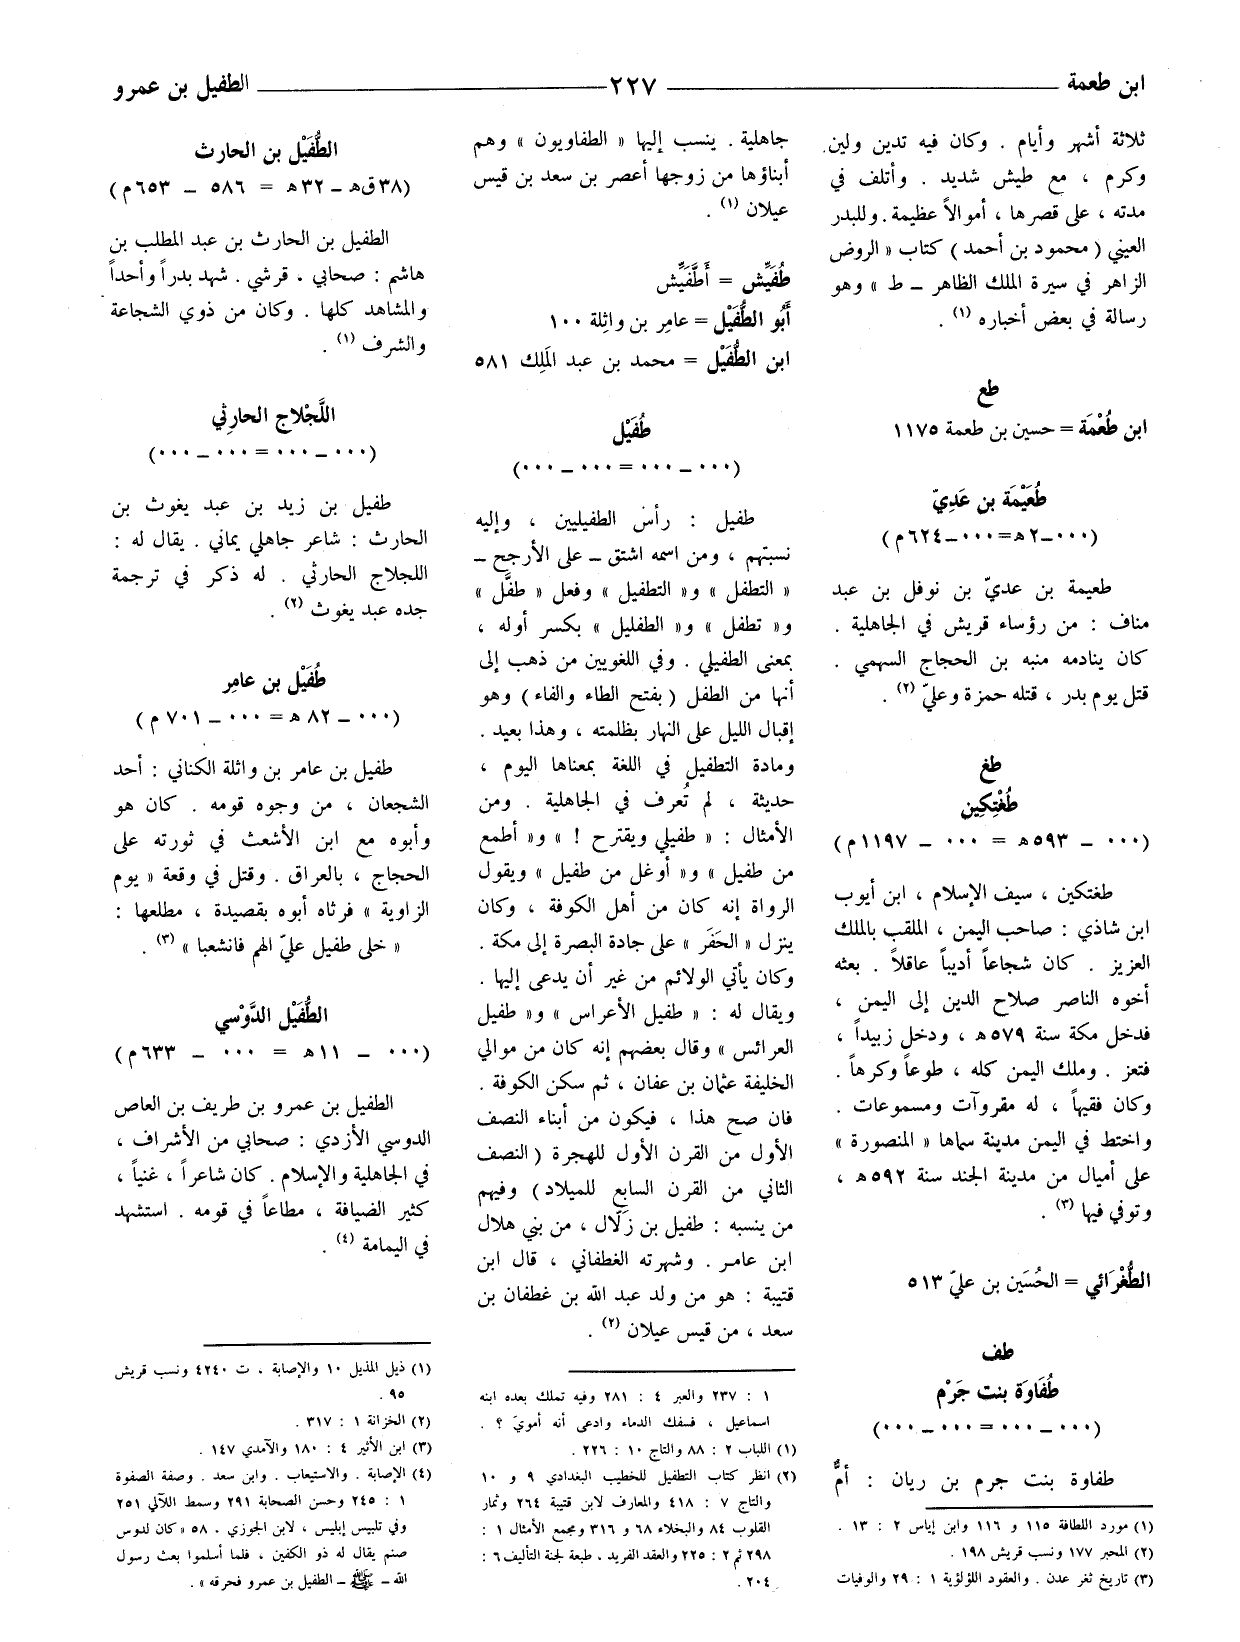 ابن طعمة ــــ ٢٢٧ ــــ الطفيل بن عمرو
ثلاثة أشهر وأيام . وكان فيه تدين ولين
وكرم ، مع طيش شديد . وأتلف في
مدته ، على قصرها ، أموالاً عظيمة . وللبدر
العيني ( محمود بن أحمد ) كتاب « الروض
الزاهر في سيرة الملك الظاهر ــ ط » وهو
رسالة في بعض أخباره (١) .
طع
ابن طُعْمَة = حسين بن طعمة ١١٧٥
طُعَيْمَة بن عَدِيّ
(٠٠٠ــ٢هـ=٠٠٠ــ٦٢٤م)
طعيمة بن عديّ بن نوفل بن عبد
مناف : من رؤساء قريش في الجاهلية .
كان ينادمه منبه بن الحجاج السهمي .
قتل يوم بدر ، قتله حمزة وعليّ (٢) .
طغ
طُغْتِكِين
(٠٠٠ ــ ٥٩٣هـ = ٠٠٠ ــ ١١٩٧م)
طغتكين ، سيف الإسلام ، ابن أيوب
ابن شاذي : صاحب اليمن ، الملقب بالملك
العزيز . كان شجاعاً أديباً عاقلاً . بعثه
أخوه الناصر صلاح الدين إلى اليمن ،
فدخل مكة سنة ٥٧٩هـ ، ودخل زبيداً ،
فتعز . وملك اليمن كله ، طوعاً وكرهاً .
وكان فقيهاً ، له مقروآت ومسموعات .
واختط في اليمن مدينة سماها « المنصورة »
على أميال من مدينة الجند سنة ٥٩٢هـ ،
وتوفي فيها (٣) .
الطُّغْرَائي = الحُسَين بن عليّ ٥١٣
طف
طُفَاوَة بنت جَرْم
(٠٠٠ــ٠٠٠ = ٠٠٠ــ٠٠٠)
طفاوة بنت جرم بن ريان : أمٌّ
(١) مورد اللطافة ١١٥ و ١١٦ وابن إياس ٢ : ١٣ .
(٢) المحبر ١٧٧ ونسب قريش ١٩٨ .
(٣) تاريخ ثغر عدن . والعقود اللؤلؤية ١ : ٢٩ والوفيات
جاهلية . ينسب إليها « الطفاويون » وهم
أبناؤها من زوجها أعصر بن سعد بن قيس
عيلان (١) .
طُفَيِّش = أَطَّفَيِّش
أَبُو الطُّفَيْل = عامِر بن واثِلة ١٠٠
ابن الطُّفَيْل = محمد بن عبد المَلِك ٥٨١
طُفَيْل
(٠٠٠ــ٠٠٠ = ٠٠٠ــ٠٠٠)
طفيل : رأس الطفيليين ، وإليه
نسبتهم ، ومن اسمه اشتق ــ على الأرجح ــ
« التطفل » و« التطفيل » وفعل « طفَّل »
و« تطفل » و« الطفليل » بكسر أوله ،
بمعنى الطفيلي . وفي اللغويين من ذهب إلى
أنها من الطفل ( بفتح الطاء والفاء ) وهو
إقبال الليل على النهار بظلمته ، وهذا بعيد .
ومادة التطفيل في اللغة بمعناها اليوم ،
حديثة ، لم تُعرف في الجاهلية . ومن
الأمثال : « طفيلي ويقترح ! » و« أطمع
من طفيل » و« أوغل من طفيل » ويقول
الرواة إنه كان من أهل الكوفة ، وكان
ينزل « الحَفَر » على جادة البصرة إلى مكة .
وكان يأتي الولائم من غير أن يدعى إليها .
ويقال له : « طفيل الأعراس » و« طفيل
العرائس » وقال بعضهم إنه كان من موالي
الخليفة عثمان بن عفان ، ثم سكن الكوفة .
فان صح هذا ، فيكون من أبناء النصف
الأول من القرن الأول للهجرة ( النصف
الثاني من القرن السابع للميلاد ) وفيهم
من ينسبه : طفيل بن زَلّال ، من بني هلال
ابن عامر . وشهرته الغطفاني ، قال ابن
قتيبة : هو من ولد عبد الله بن غطفان بن
سعد ، من قيس عيلان (٢) .
١ : ٢٣٧ والعبر ٤ : ٢٨١ وفيه تملك بعده ابنه
اسماعيل ، فسفك الدماء وادعى أنه أمويّ ؟ .
(١) اللباب ٢ : ٨٨ والتاج ١٠ : ٢٢٦ .
(٢) انظر كتاب التطفيل للخطيب البغدادي ٩ و ١٠
والتاج ٧ : ٤١٨ والمعارف لابن قتيبة ٢٦٤ وثمار
القلوب ٨٤ والبخلاء ٦٨ و ٣١٦ ومجمع الأمثال ١ :
٢٩٨ ثم ٢ : ٢٢٥ والعقد الفريد ، طبعة لجنة التأليف ٦ :
٢٠٤ .
الطُّفَيْل بن الحارث
(٣٨ق هـ ــ ٣٢هـ = ٥٨٦ ــ ٦٥٣م)
الطفيل بن الحارث بن عبد المطلب بن
هاشم : صحابي ، قرشي . شهد بدراً وأحداً
والمشاهد كلها . وكان من ذوي الشجاعة
والشرف (١) .
اللَّجْلاج الحارِثي
(٠٠٠ــ٠٠٠ = ٠٠٠ــ٠٠٠)
طفيل بن زيد بن عبد يغوث بن
الحارث : شاعر جاهلي يماني . يقال له :
اللجلاج الحارثي . له ذكر في ترجمة
جده عبد يغوث (٢) .
طُفَيْل بن عامِر
(٠٠٠ ــ ٨٢هـ = ٠٠٠ ــ ٧٠١ م)
طفيل بن عامر بن واثلة الكناني : أحد
الشجعان ، من وجوه قومه . كان هو
وأبوه مع ابن الأشعث في ثورته على
الحجاج ، بالعراق . وقتل في وقعة « يوم
الزاوية » فرثاه أبوه بقصيدة ، مطلعها :
« خلى طفيل عليّ الهم فانشعبا » (٣) .
الطُّفَيْل الدَّوْسي
(٠٠٠ ــ ١١هـ = ٠٠٠ ــ ٦٣٣م)
الطفيل بن عمرو بن طريف بن العاص
الدوسي الأزدي : صحابي من الأشراف ،
في الجاهلية والإسلام . كان شاعراً ، غنياً ،
كثير الضيافة ، مطاعاً في قومه . استشهد
في اليمامة (٤) .
(١) ذيل المذيل ١٠ والإصابة ، ت ٤٢٤٠ ونسب قريش
٩٥ .
(٢) الخزانة ١ : ٣١٧ .
(٣) ابن الأثير ٤ : ١٨٠ والآمدي ١٤٧ .
(٤) الإصابة . والاستيعاب . وابن سعد . وصفة الصفوة
١ : ٢٤٥ وحسن الصحابة ٢٩١ وسمط اللآلي ٢٥١
وفي تلبيس إبليس ، لابن الجوزي . ٥٨ « كان لدوس
صنم يقال له ذو الكفين ، فلما أسلموا بعث رسول
الله ــ ﷺ ــ الطفيل بن عمرو فحرقه » .